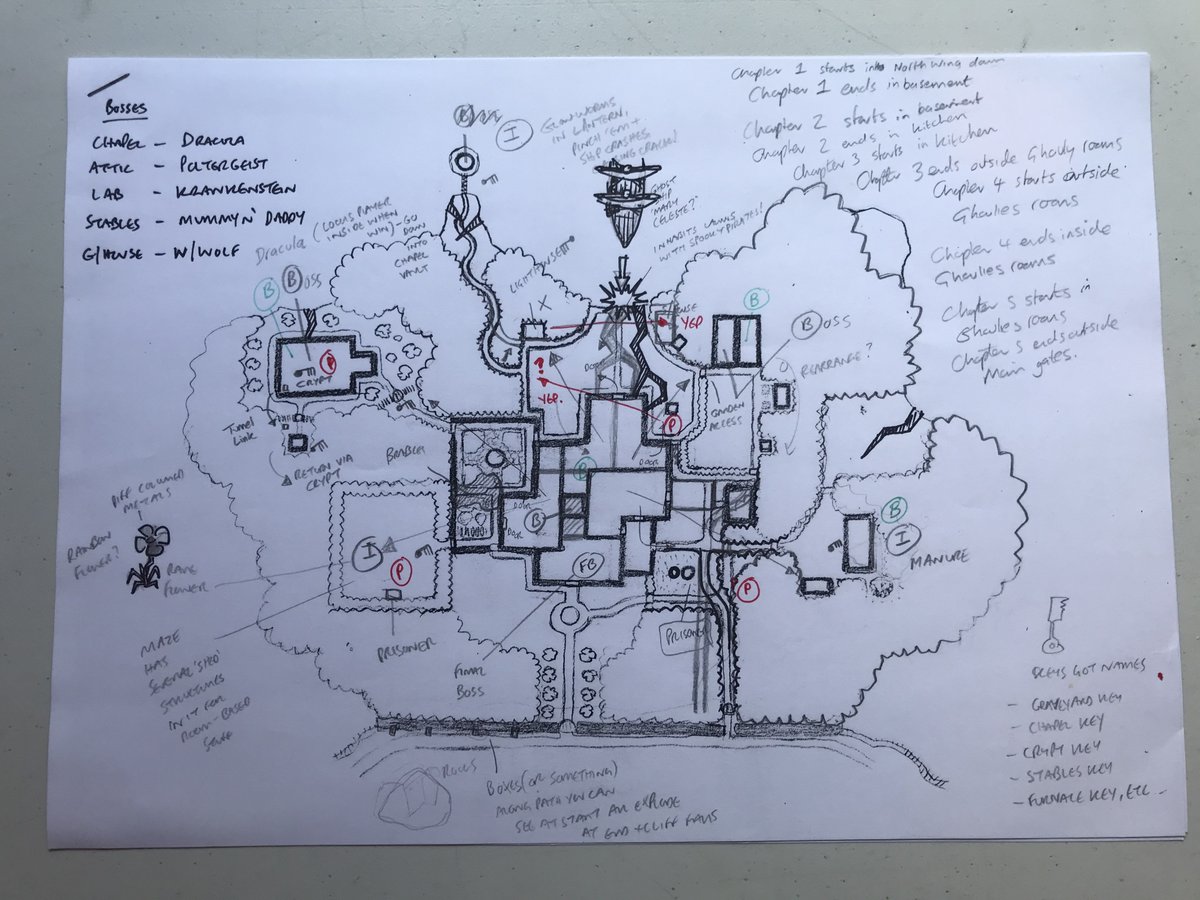 BOSSES
CHAPEL - DRACULA
ATTIC - POLTERGEIST
LAB - KRANKENSTEIN
STABLES - MUMMY N' DADDY
G/HOUSE - W/WOLF
Chapter 1 starts into North Wing down
Chapter 1 ends in basement
Chapter 2 starts in basement
Chapter 2 ends in kitchen
Chapter 3 starts in kitchen
Chapter 3 ends outside Ghouly rooms
Chapter 4 starts outside
Ghoulies rooms
Chapter 4 ends inside
Ghoulies rooms
Chapter 5 starts in
Ghoulies rooms
Chapter 5 ends outside
Main gates.
I
GLOWWORMS
IN LANTERN,
PINCH 'EM +
SHIP CRASHES
GHOST
SHIP
'MARY
CELESTE?'
INHABITS
WITH SPOOKY PIRATES!
Dracula
(LOCKS PLAYER
INSIDE WHEN
WIN) - GO
DOWN
INTO
CHAPEL
VAULT
LIGHTHOUSE
X
B
BOSS
B
P
CRYPT
Tunnel
Link
RETURN VIA
CRYPT
YEP
??
YEP.
DOOR
P
B
BOSS
REARRANGE?
GARDEN
ACCESS
DOOR
B
DOOR
DOOR
B
FB
DIFF COLOURED
METALS
RAINBOW
FLOWER?
RARE
FLOWER
I
P
PRISONER
MAZE
HAS
SEVERAL 'SHED'
STRUCTURES
IN IT FOR
ROOM-BASED
FINAL
BOSS
PRISONER
P
B
I
MANURE
KEYS GOT NAMES
- GRAVEYARD KEY
- CHAPEL KEY
- CRYPT KEY
- STABLES KEY
- FURNACE KEY, ETC -
ROCKS
BOXES (OR SOMETHING)
ALONG PATH YOU CAN
SEE AT START AN EXPLODE
AT END + CLIFF FALLS